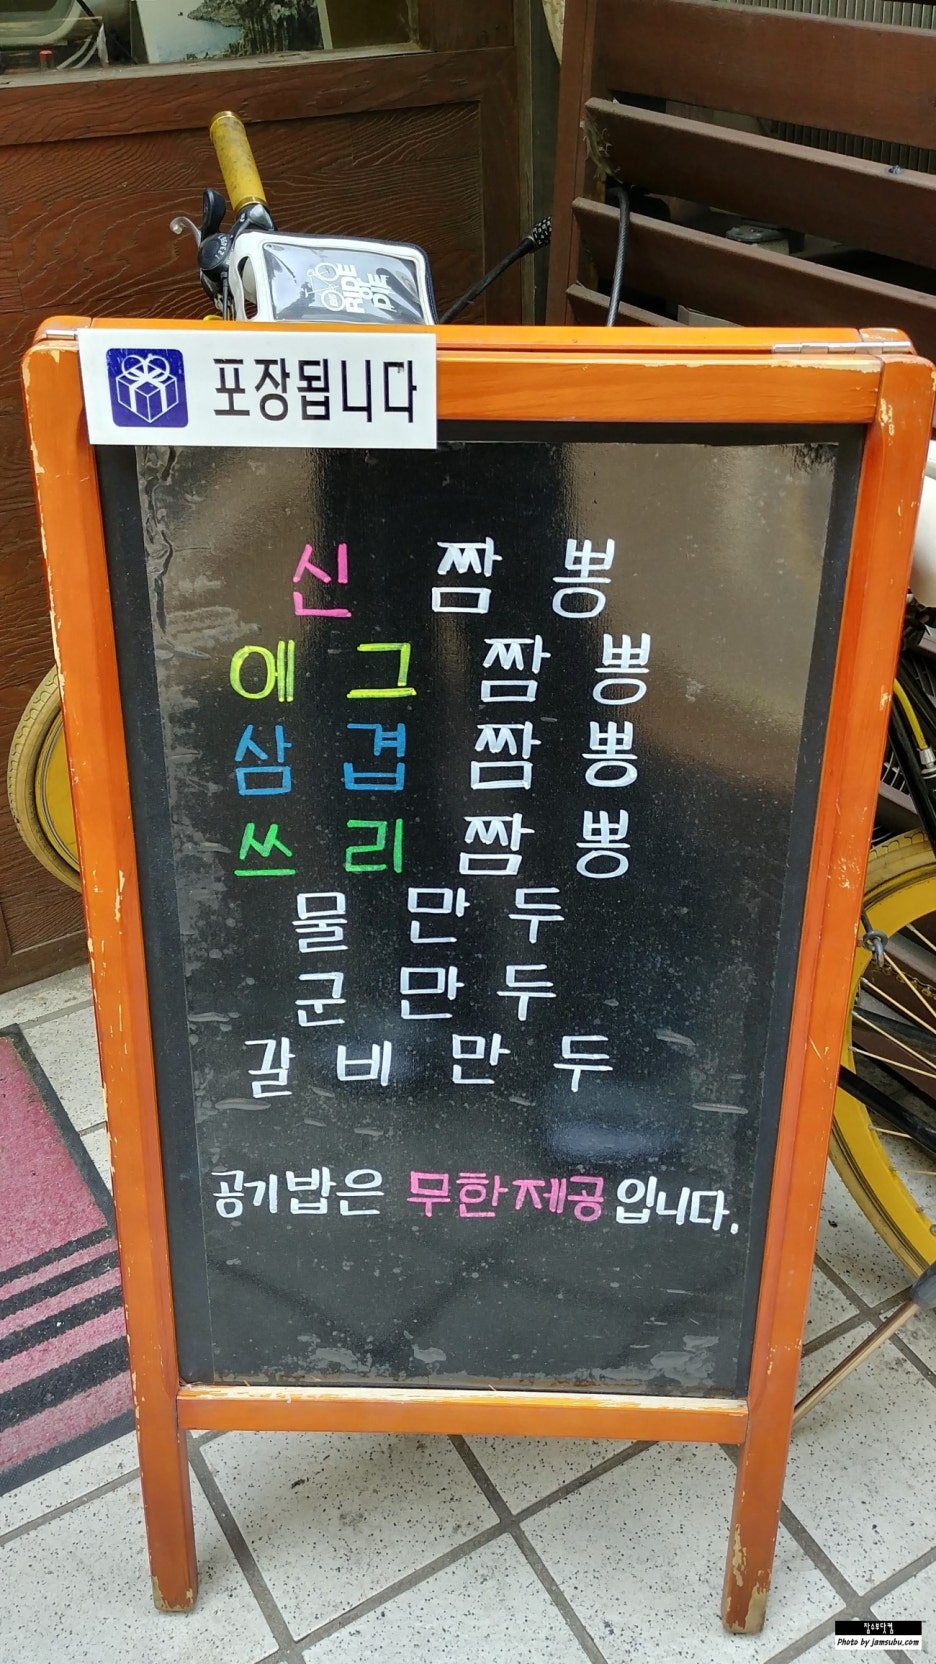 RIDE
OR
DIE
포장됩니다
신 짬 뽕
에 그 짬 뽕
삼 겹 짬 뽕
쓰 리 짬 뽕
물 만 두
군 만 두
갈 비 만 두
공기밥은 무한제공입니다.
잠수부닷컴
Photo by jamsubu.com